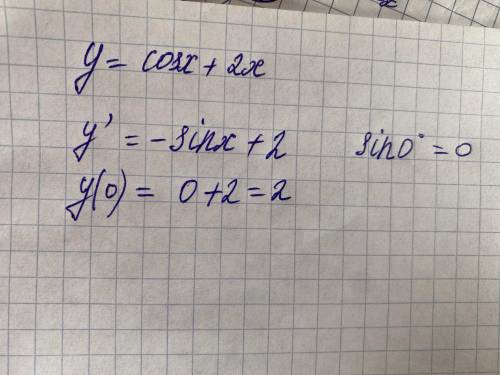 y = cosx + 2x
y' = -sinx + 2 sin0° = 0
y(0) = 0+2 = 2